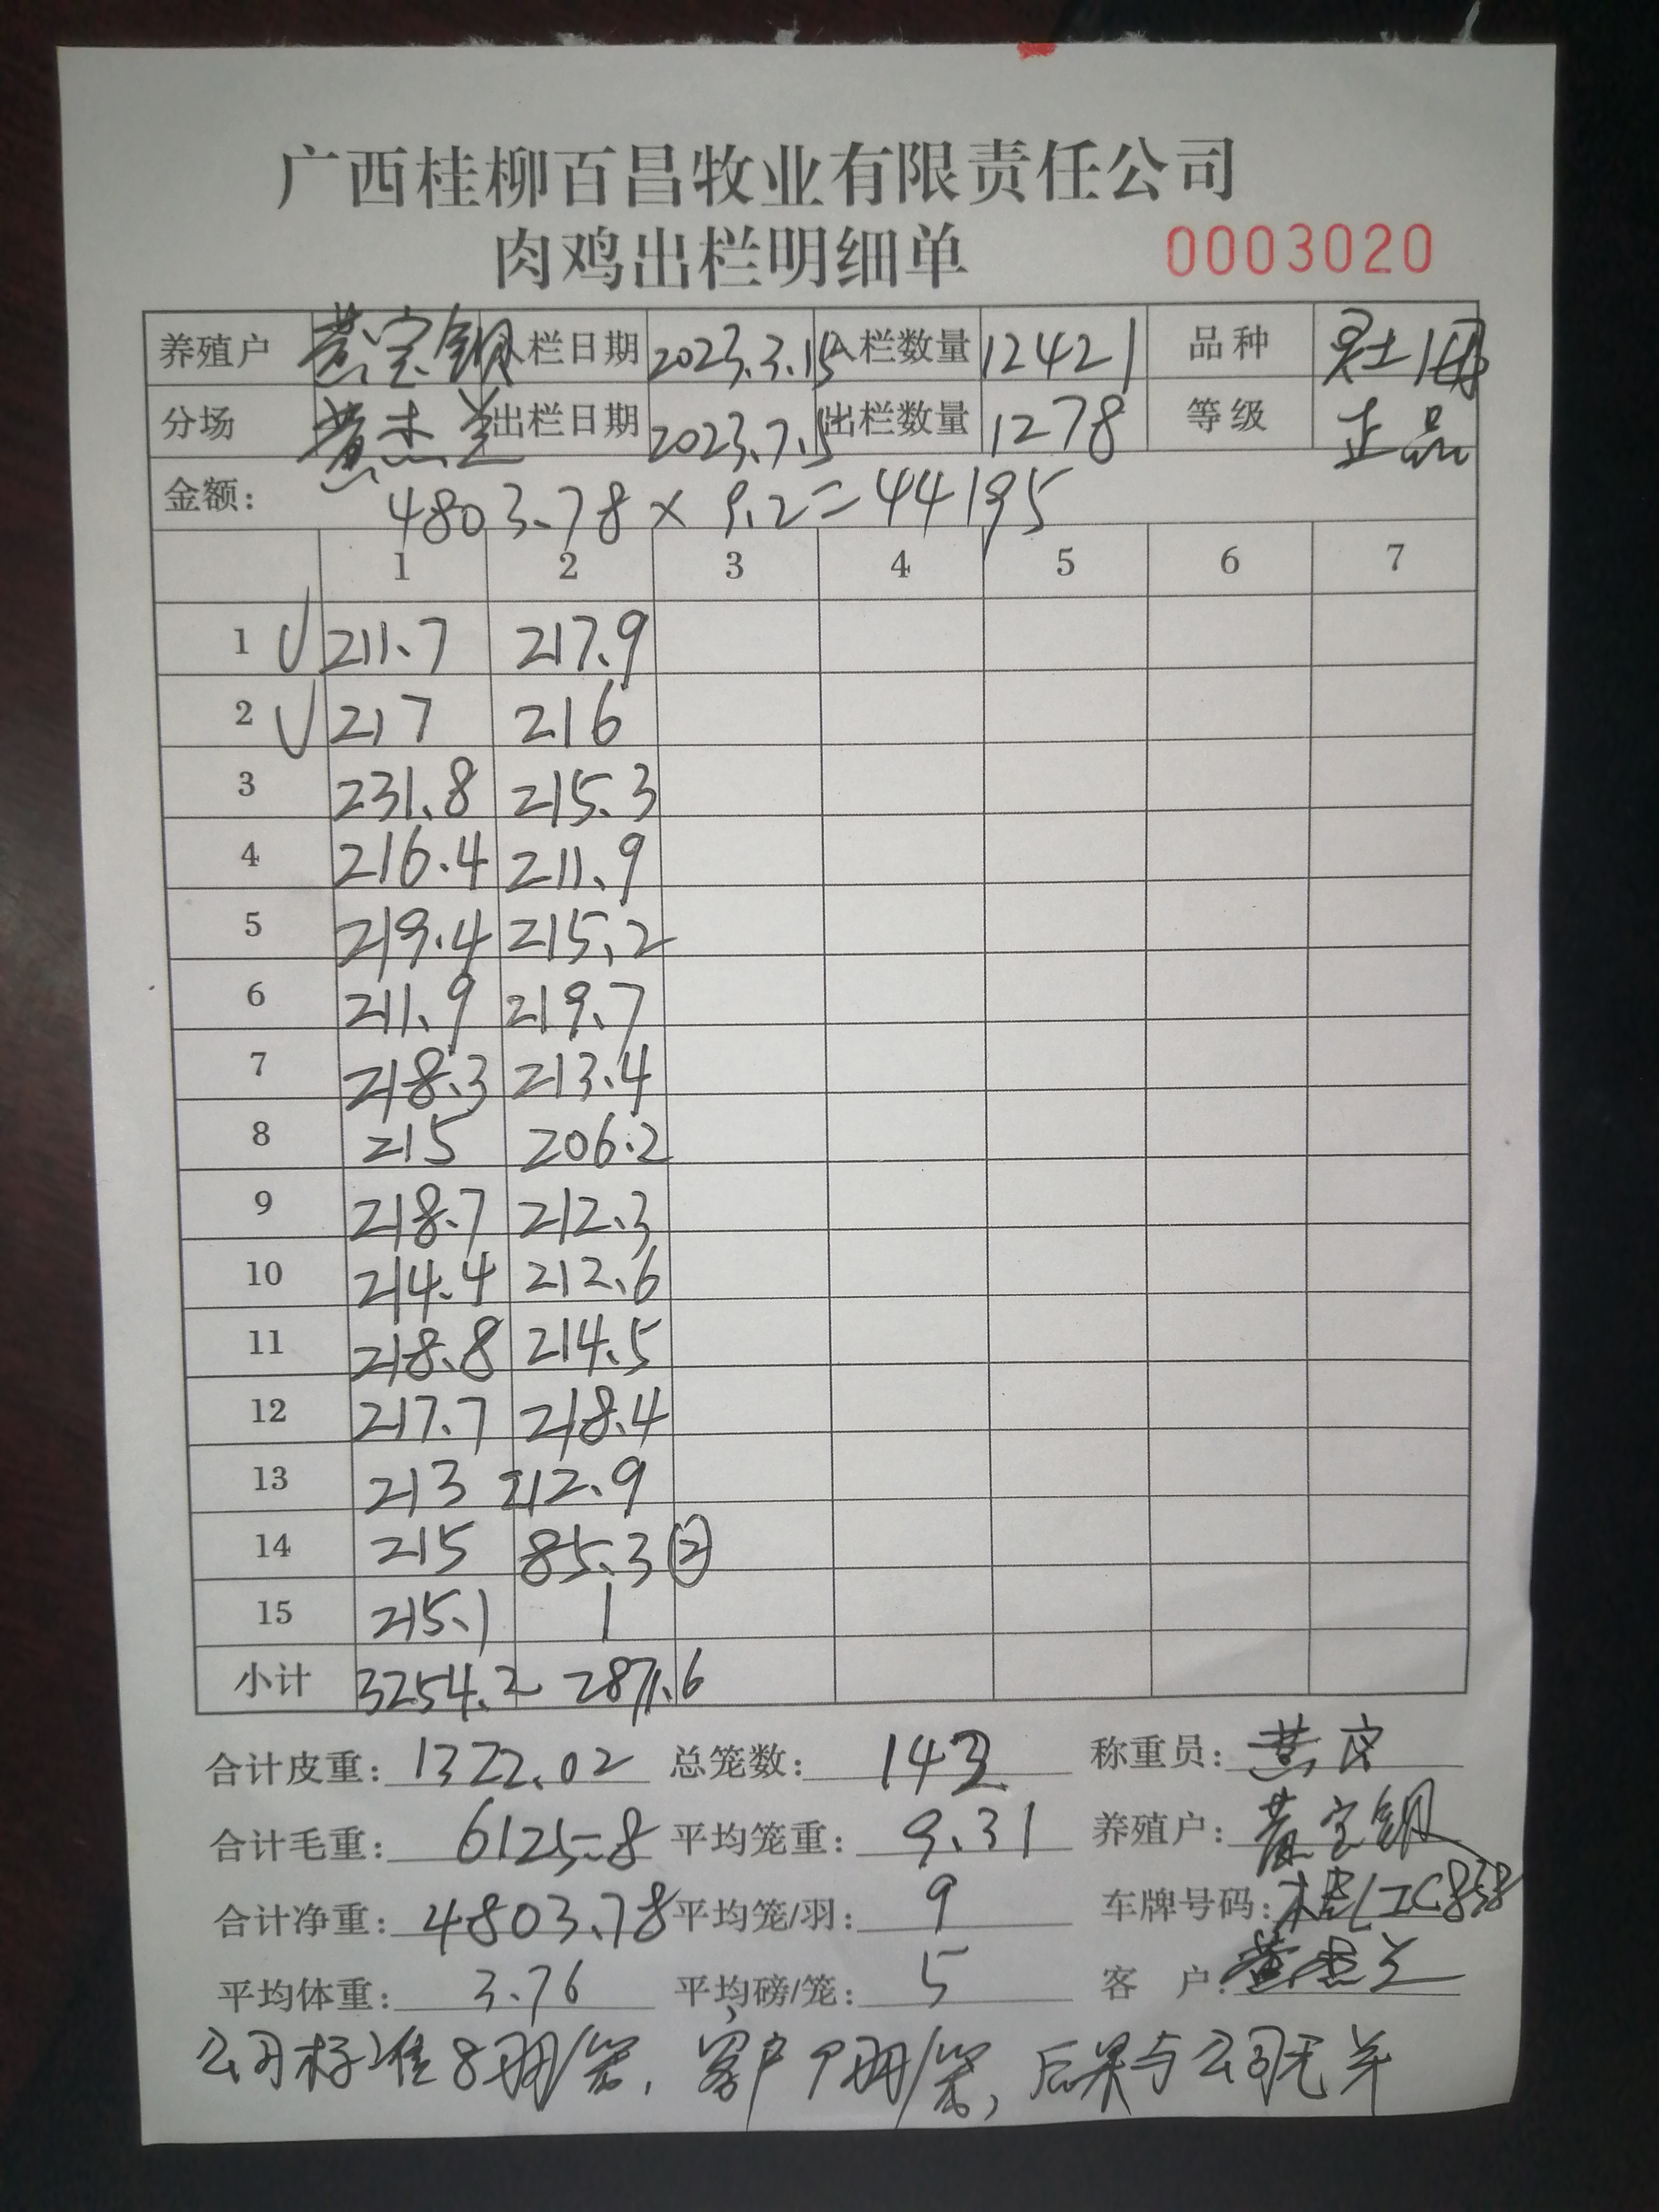 广西桂柳百昌牧业有限责任公司
肉鸡出栏明细单 0003020
养殖户 黄宝钢 入栏日期 2023.3.15 入栏数量 12421 品种
分场 黄杰兰 出栏日期 2023.7.5 出栏数量 1278 等级 正品
金额: 4803.78 × 9.2 = 44195
1 2 3 4 5 6 7
1 211.7 217.9
2 217 216
3 231.8 215.3
4 216.4 211.9
5 219.4 215.2
6 211.9 219.7
7 218.3 213.4
8 215 206.2
9 218.7 212.3
10 214.4 212.6
11 218.8 214.5
12 217.7 218.4
13 213 212.9
14 215 85.3 ②
15 215.1
小计 3254.2 2871.6
合计皮重: 1322.02 总笼数: 142 称重员: 黄
合计毛重: 6125.8 平均笼重: 9.31 养殖户: 黄宝钢
合计净重: 4803.78 平均笼/羽: 9 车牌号码: 桂
平均体重: 3.76 平均磅/笼: 5 客 户: 黄杰兰
公司标准8羽/笼, 客户9羽/笼, 后果与公司无关